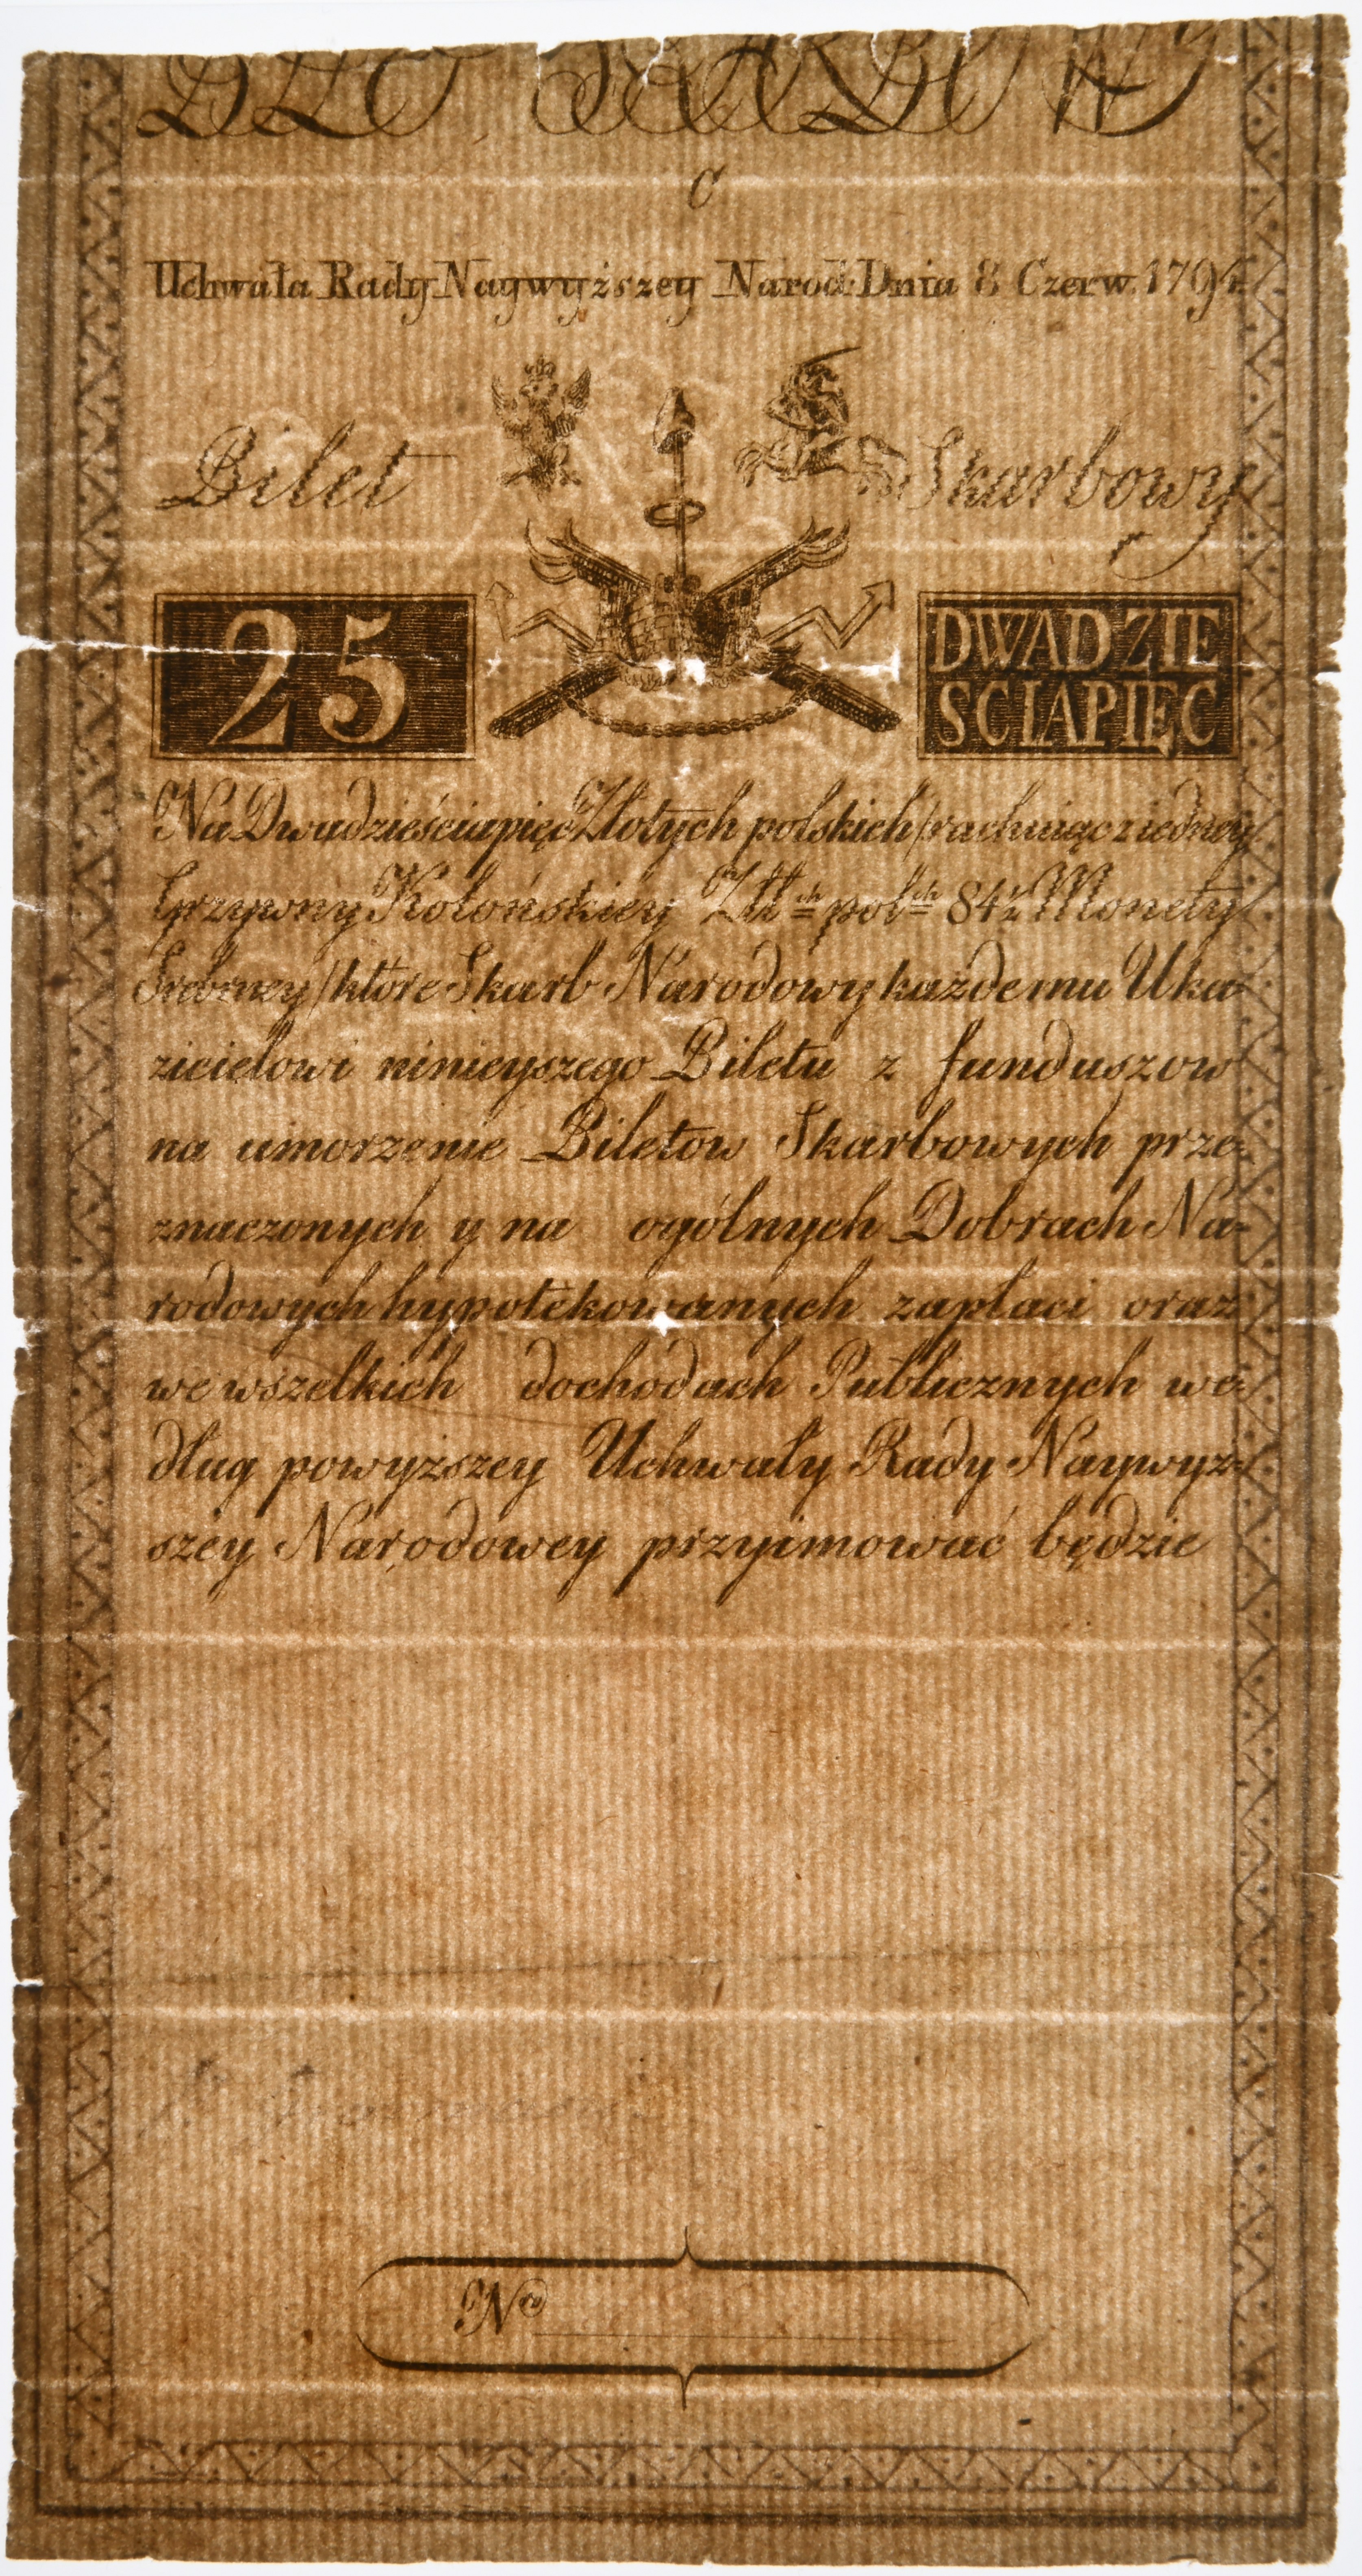 C
Uchwała Rady Naywyższey Narod: Dnia 8 Czerw. 1794.
Bilet Skarbowy
25 DWADZIE
SCIAPIĘC
Na Dwadzieściapięć Złotych polskich /rachuiąc z iedney
Grzywny Kolońskiey Złł ch pol ch 84½ Monety
Srebrney/ które Skarb Narodowy każdemu Uka-
zicielowi ninieyszego Biletu z funduszow
na umorzenie Biletow Skarbowych prze-
znaczonych y na ogólnych Dobrach Na-
rodowych hypotekowanych zapłaci oraz
we wszelkich dochodach Publicznych we-
dług powyższey Uchwały Rady Naywyż-
szey Narodowey przyimować będzie
Nro